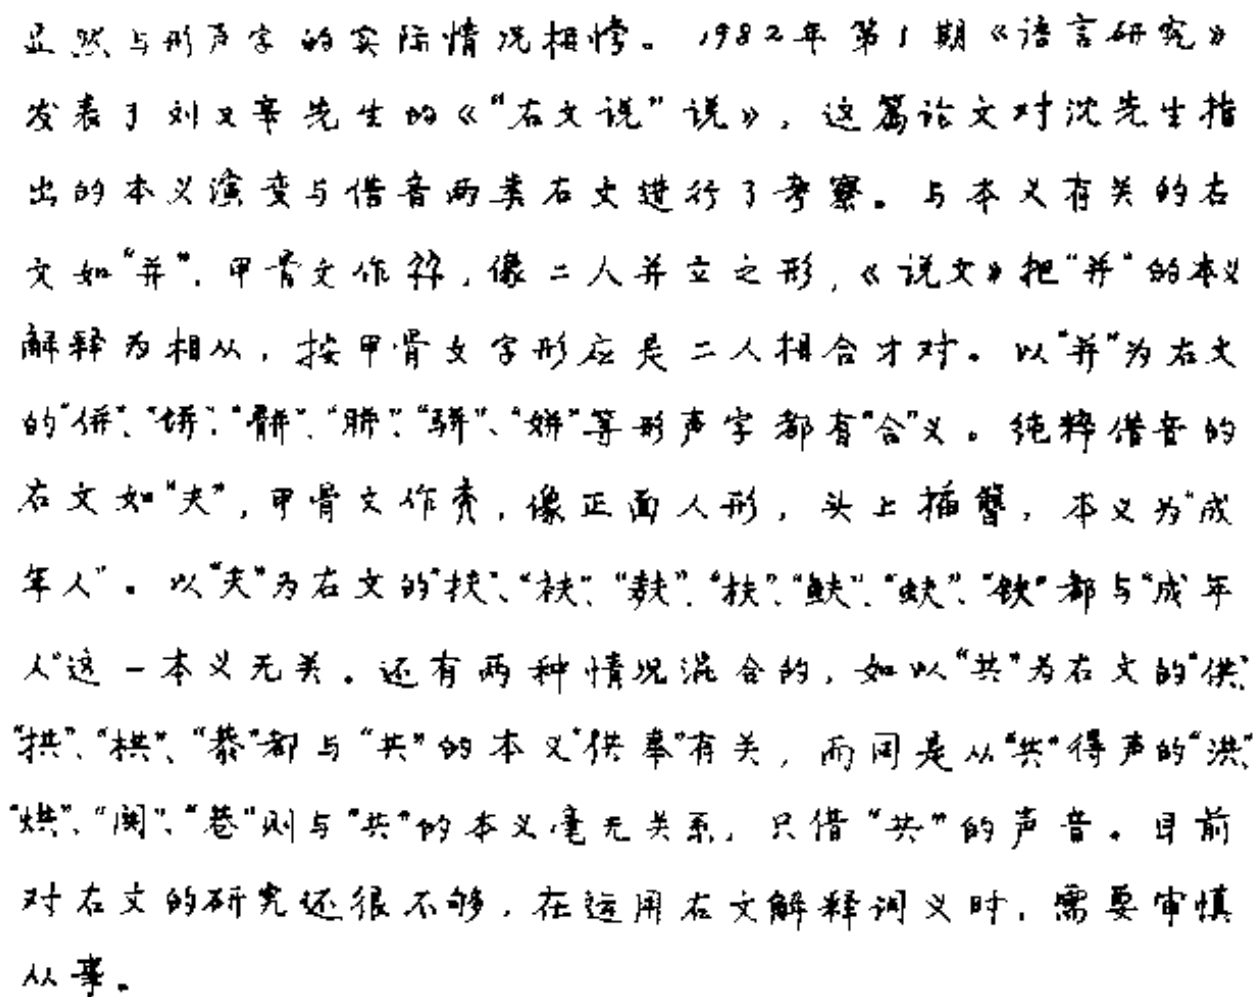 显然与形声字的实际情况相悖。1982年第1期《语言研究》
发表了刘又辛先生的《“右文说”说》，这篇论文对沈先生指
出的本义演变与借音两类右文进行了考察。与本义有关的右
文如“并”，甲骨文作，像二人并立之形，《说文》把“并”的本义
解释为相从，按甲骨文字形应是二人相合才对。以“并”为右文
的“併”、“姘”、“骿”、“胼”、“骈”、“姘”等形声字都有“合”义。纯粹借音的
右文如“夫”，甲骨文作，像正面人形，头上插簪，本义为“成
年人”。以“夫”为右文的“扶”、“衭”、“麸”、“枎”、“鈇”、“蚨”、“鈇”都与“成年
人”这一本义无关。还有两种情况混合的，如以“共”为右文的“供”、
“拱”、“栱”、“恭”都与“共”的本义“供奉”有关，而同是从“共”得声的“洪”、
“烘”、“閧”、“巷”则与“共”的本义毫无关系，只借“共”的声音。目前
对右文的研究还很不够，在运用右文解释词义时，需要审慎
从事。